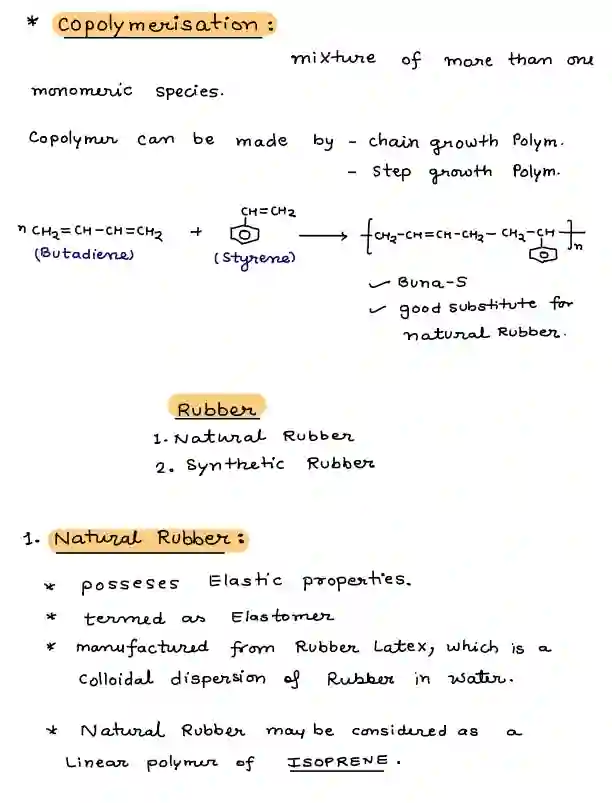 * Copolymerisation :
mixture of more than one
monomeric species.
Copolymer can be made by - chain growth Polym.
- Step growth Polym.
CH=CH2
n CH2=CH-CH=CH2 + ⟶ [CH2-CH=CH-CH2- CH2-CH]n
(Butadiene) (Styrene)
✓ Buna-S
✓ good substitute for
natural Rubber.
Rubber
1. Natural Rubber
2. Synthetic Rubber
1. Natural Rubber :
* posseses Elastic properties.
* termed as Elastomer
* manufactured from Rubber Latex, which is a
Colloidal dispersion of Rubber in water.
* Natural Rubber may be considered as a
Linear polymer of ISOPRENE.